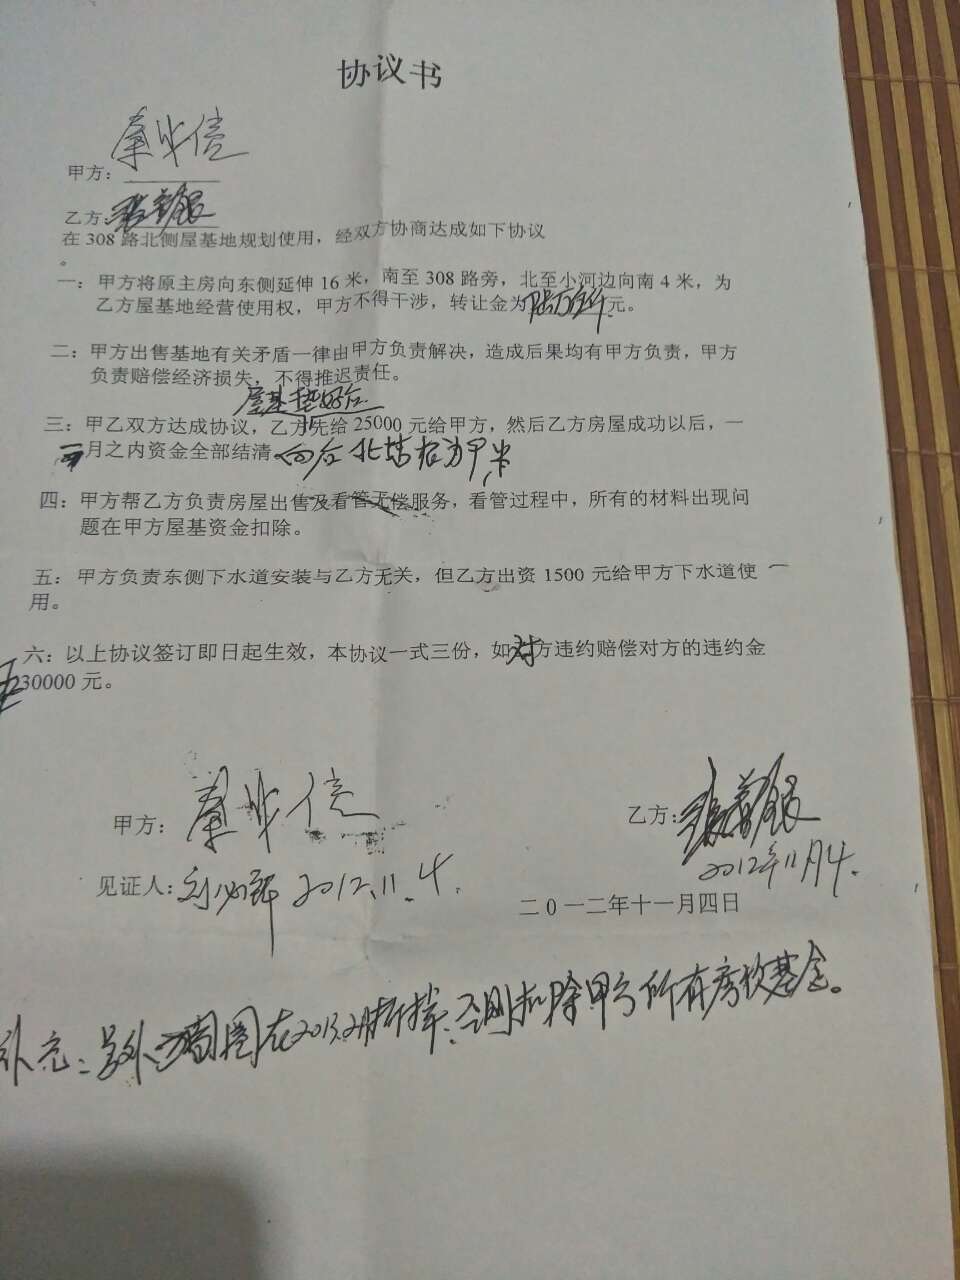 协议书
甲方：
乙方：
在 308 路北侧屋基地规划使用，经双方协商达成如下协议
。
一：甲方将原主房向东侧延伸 16 米，南至 308 路旁，北至小河边向南 4 米，为
乙方屋基地经营使用权，甲方不得干涉，转让金为陆万企仟元。
二：甲方出售基地有关矛盾一律由甲方负责解决，造成后果均有甲方负责，甲方
负责赔偿经济损失，不得推迟责任。
屋基垫好后
三：甲乙双方达成协议，乙方先给 25000 元给甲方，然后乙方房屋成功以后，一
月之内资金全部结清
四：甲方帮乙方负责房屋出售及看管无偿服务，看管过程中，所有的材料出现问
题在甲方屋基资金扣除。
五：甲方负责东侧下水道安装与乙方无关，但乙方出资 1500 元给甲方下水道使
用。
六：以上协议签订即日起生效，本协议一式三份，如对方违约赔偿对方的违约金
30000 元。
甲方：
乙方：
2012年11月4.
见证人： 2012.11.4.
二 0 一二年十一月四日
补充：另外 周围在2013.2月拆掉，否则扣除甲方所有房款基金。